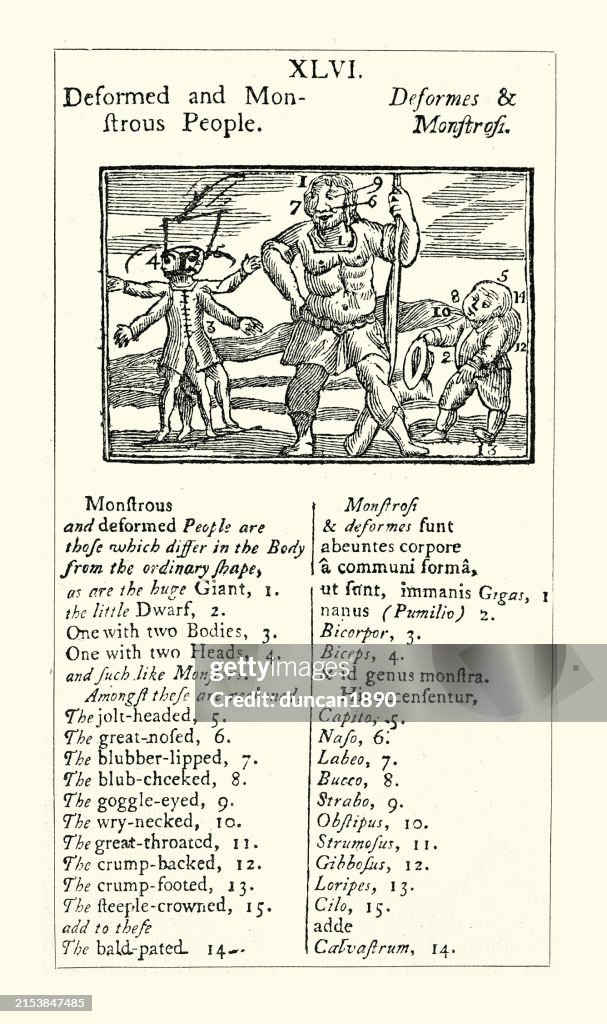 XLVI.
Deformed and Mon-
ſtrous People.
Deformes &
Monſtroſi.
1
9
7
6
1
4
3
5
8
14
10
12
2
13
Monſtrous
and deformed People are
thoſe which differ in the Body
from the ordinary ſhape,
as are the huge Giant, 1.
the little Dwarf, 2.
One with two Bodies, 3.
One with two Heads, 4.
and ſuch like
Amongſt theſe are
The jolt-headed, 5.
The great-noſed, 6.
The blubber-lipped, 7.
The blub-cheeked, 8.
The goggle-eyed, 9.
The wry-necked, 10.
The great-throated, 11.
The crump-backed, 12.
The crump-footed, 13.
The ſteeple-crowned, 15.
add to theſe
The bald-pated 14.
Monſtroſi
& deformes ſunt
abeuntes corpore
â communi formâ,
ut ſunt, immanis Gigas, 1
nanus (Pumilio) 2.
Bicorpor, 3.
Biceps, 4.
& id genus monſtra.
cenſentur,
Capito, 5.
Naſo, 6.
Labeo, 7.
Bucco, 8.
Strabo, 9.
Obſtipus, 10.
Strumoſus, 11.
Gibboſus, 12.
Loripes, 13.
Cilo, 15.
adde
Calvaſtrum, 14.
gettyimages
Credit: duncan1890
iStock
Credit: duncan1890
2153847485